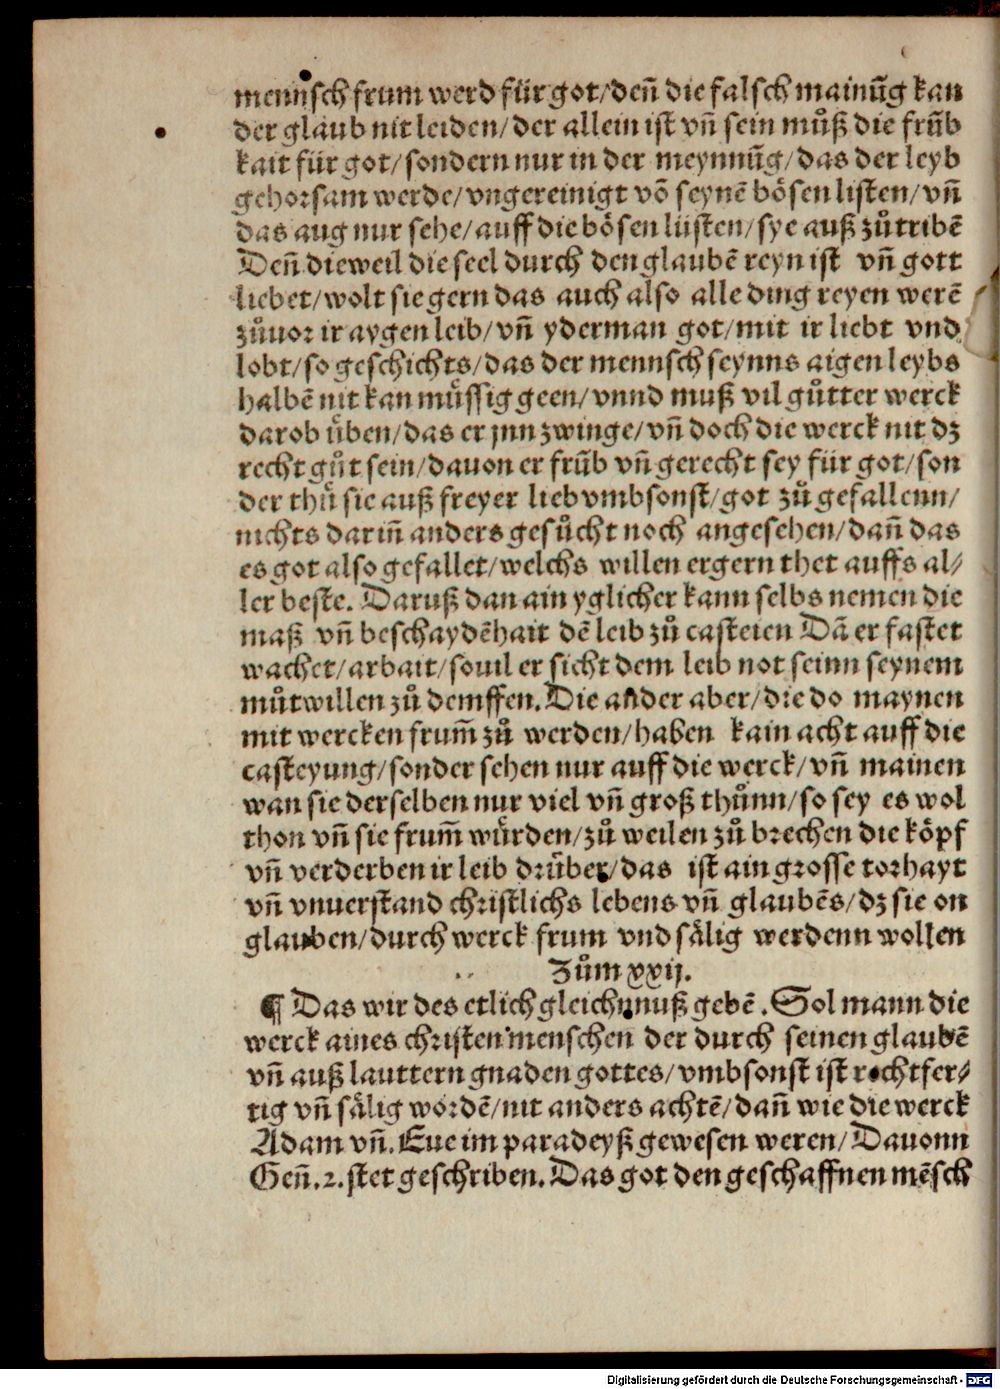 mennsch frum werd für got/deñ die falsch mainūg kan
der glaub nit leiden/der allein ist vñ sein můß die frūb
kait für got/sondern nur in der meynnūg/das der leyb
gehorsam werde/vngereinigt võ seynē bösen listen/vñ
das aug nur sehe/auff die bösen lüsten/sye auß zůtribē
Deñ dieweil die seel durch den glaubē reyn ist vñ gott
liebet/wolt sie gern das auch also alle ding reyen werē
zůuor ir aygen leib/vñ yderman got/mit ir liebt vnd
lobt/so geschichts/das der mennsch seynns aigen leybs
halbē nit kan müssig geen/vnnd muß vil gůtter werck
darob üben/das er jnn zwinge/vñ doch die werck nit dz
recht gůt sein/dauon er frūb vñ gerecht sey für got/son
der thů sie auß freyer lieb vmbsonst/got zů gefallenn/
nichts dariñ anders gesůcht noch angesehen/dañ das
es got also gefallet/welchs willen er gern thet auffs al⸗
ler beste. Daruß dan ain yglicher kann selbs nemen die
maß vñ beschaydēhait dē leib zů casteien Dā er fastet
wachet/arbait/souil er sicht dem leib not seinn seynem
můtwillen zů demffen. Die ander aber/die do maynen
mit wercken frum̃ zů werden/haben kain acht auff die
casteyung/sonder sehen nur auff die werck/vñ mainen
wan sie derselben nur viel vñ groß thůnn/so sey es wol
thon vñ sie frum̃ würden/zů weilen zů brechen die köpf
vñ verderben ir leib drüber/das ist ain grosse torhayt
vñ vnuerstand christlichs lebens vñ glaubēs/dz sie on
glauben/durch werck frum vnd sälig werdenn wollen
Zům xxij.
¶ Das wir des etlich gleichnnuß gebē. Sol mann die
werck aines christen menschen der durch seinen glaubē
vñ auß lauttern gnaden gottes/vmbsonst ist rechtfer⸗
tig vñ sälig wordē/nit anders achtē/dañ wie die werck
Adam vñ. Eue im paradeyß gewesen weren/Dauonn
Geñ.2.stet geschriben. Das got den geschaffnen mēsch
Digitalisierung gefördert durch die Deutsche Forschungsgemeinschaft - DFG